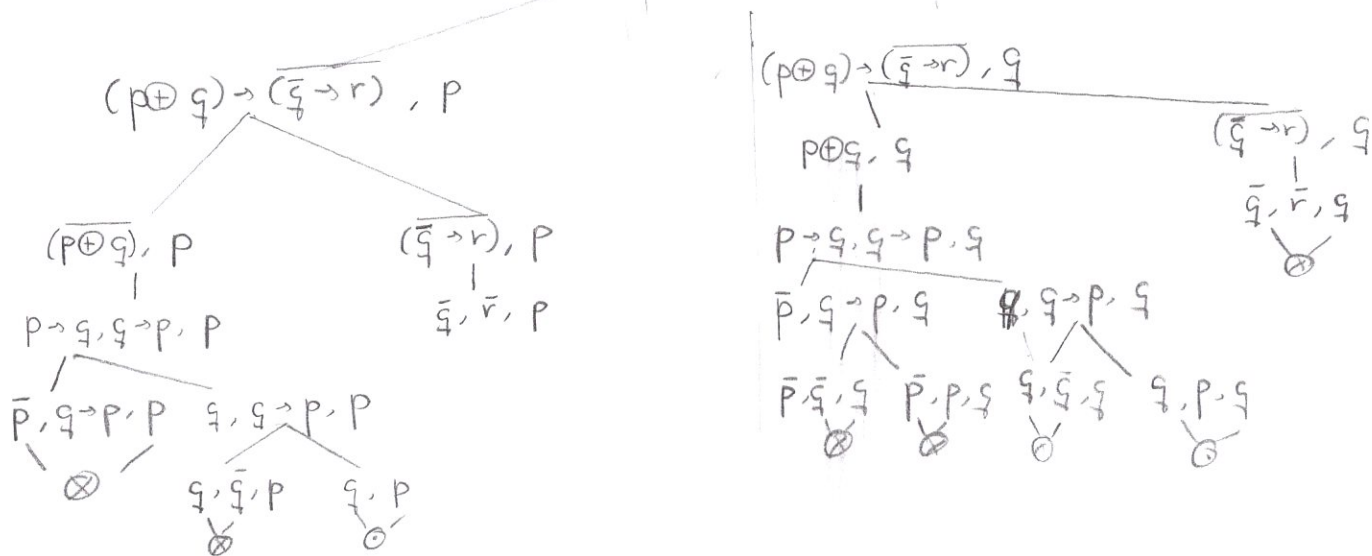 (p⊕q)→(q̄→r)̅, p
(p⊕q)̅, p
(q̄→r)̅, p
p→q, q→p, p
q̄, r̄, p
p̄, q→p, p
q, q→p, p
⊗
q, q̄, p
q, p
⊗
⊙
(p⊕q)→(q̄→r)̅, q
p⊕q, q
(q̄→r)̅, q
q̄, r̄, q
⊗
p→q, q→p, q
p̄, q→p, q
q, q→p, q
p̄, q̄, q
p̄, p, q
q, q̄, q
q, p, q
⊗
⊗
⊙
⊙